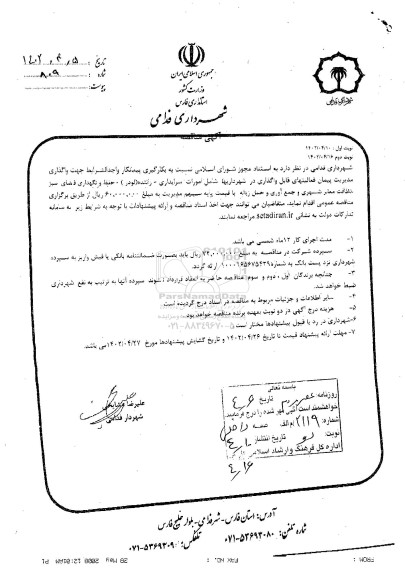 جمهوری اسلامی ایران
وزارت کشور
استانداری فارس
شهرداری فدامی
تاریخ ۱۴۰۲/۴/۵
شماره ۸۰۹
پیوست:
آگهی مناقصه
نوبت اول : ۱۴۰۲/۰۴/۱۰
نوبت دوم ۱۴۰۲/۰۴/۱۶
شهرداری فدامی در نظر دارد به استناد مجوز شورای اسلامی نسبت به بکارگیری پیمانکار واجدالشرایط جهت واگذاری
مدیریت پیمان فعالیتهای قابل واگذاری در شهرداریها شامل امورات سرایداری - راننده(لودر) - حفظ و نگهداری فضای سبز
-نظافت معابر شهری و جمع آوری و حمل زباله با قیمت پایه سهم مدیریت به مبلغ ۶۰,۰۰۰,۰۰۰ ریال از طریق برگزاری
مناقصه عمومی اقدام نماید. متقاضیان می توانند جهت اخذ اسناد مناقصه و ارائه پیشنهادات با توجه به شرایط زیر به سامانه
تدارکات دولت به نشانی setadiran.ir مراجعه نمایند.
۱- مدت اجرای کار ۱۲ماه شمسی می باشد.
۲- سپرده شرکت در مناقصه به مبلغ ریال باید بصورت ضمانتنامه بانکی یا فیش واریز به سپرده
شهرداری نزد پست بانک به شماره ارائه گردد.
۳- چنانچه برندگان اول ، دوم و سوم مناقصه حاضر به انعقاد قرارداد نشوند سپرده آنها به ترتیب به نفع شهرداری
ضبط خواهد شد.
۴- سایر اطلاعات و جزئیات مربوط به مناقصه در اسناد درج گردیده است.
۵- هزینه درج آگهی در دو نوبت بعهده برنده مناقصه خواهد بود.
۶-شهرداری در رد یا قبول پیشنهادها مختار است.
۷- مهلت ارائه پیشنهاد قیمت تا تاریخ ۱۴۰۲/۰۴/۲۶ و تاریخ گشایش پیشنهادها مورخ ۱۴۰۲/۰۴/۲۷می باشد.
ParsNamadData
۰۲۱-۸۸۳۴۹۶۷۰-۵
شهردار فدامی
باسمه تعالی
روزنامه: تاریخ ۴/۶
شماره: ۲۱۱۹ م/الف
نوبت: تاریخ انتشار ۴/۱۰
اداره کل فرهنگ و ارشاد اسلامی
۴/۱۶
آدرس: استان فارس - شهر فدامی - بلوار خلیج فارس
شماره تلفن: ۰۷۱-۵۳۶۹۳۰۸۰ تلفکس: ۰۷۱-۵۳۶۹۳۰۹۰
FROM : FAX NO. : 28 May 2000 12:01AM P1